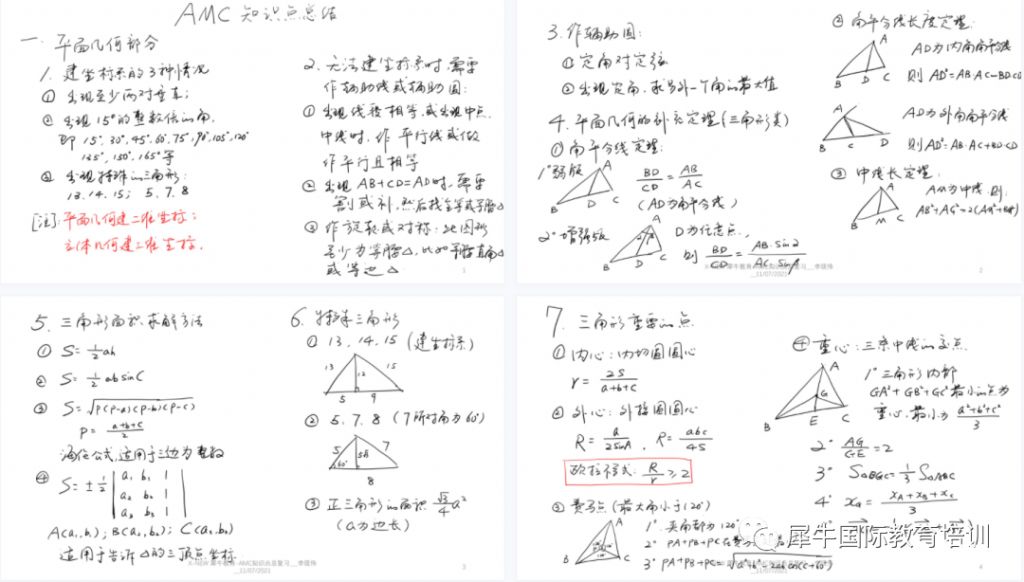 AMC 知识点总结
一. 平面几何部分
1. 建坐标系的3种情况
① 出现至少两对垂直;
② 出现15°的整数倍的角,
即 15°, 30°, 45°, 60°, 75°, 90°, 105°, 120°
135°, 150°, 165° 等
③ 出现特殊的三角形:
13. 14. 15; 5. 7. 8
[注]: 平面几何建二维坐标;
立体几何建三维坐标.
2. 无法建坐标系时, 需要
作辅助线或辅助圆:
① 出现线段相等, 或出现中点,
中线时, 作平行线或做
作平行且相等
② 出现 AB+CD=AD时, 需要
割或补, 然后找全等或等腰△
③ 作旋转或对称: 此图形
至少为等腰△, 比如等腰直角△
或等边△
1
3. 作辅助圆:
① 定角对定弦
② 出现定角, 求另外一个角的最大值
4. 平面几何的补充定理(三角形类)
① 角平分线定理:
1° 弱版
A
B D C
BD/CD = AB/AC
(AD为角平分线)
2° 增强版
A
B D C
D为任意点.
则 BD/CD = AB·sin2/AC·sin1
② 角平分线长度定理:
A
B D C
AD为内角角平分线
则 AD²=AB·AC-BD·CD
A
B C D
AD为外角角平分线
则 AD²=AB·AC+BD·CD
③ 中线长定理:
A
B M C
AM为中线, 则:
AB²+AC²=2(AM²+BM²)
11/07/2021
2
5. 三角形面积求解方法
① S=½ah
② S=½absinC
③ S=√P(P-a)(P-b)(P-c)
P=(a+b+c)/2
海伦公式, 适用于三边为整数
④ S=±½ | a₁ b₁ 1 |
| a₂ b₂ 1 |
| a₃ b₃ 1 |
A(a₁,b₁); B(a₂,b₂); C(a₃,b₃)
适用于告诉△的三顶点坐标
6. 特殊三角形
① 13. 14. 15 (建坐标系)
13 12 15
5 9
② 5. 7. 8 (7所对角为60°)
5 7
60°
8
③ 正三角形的面积 √3/4 a²
(a为边长)
X-NEW 犀牛教育-AMC知识点总复习__李瑶伟
__11/07/2021
3
7. 三角形重要的点
① 内心: 内切圆圆心
r = 2S/(a+b+c)
② 外心: 外接圆圆心
R = a/2sinA , R = abc/4S
欧拉不等式: R/r ≥ 2
③ 费马点 (最大角小于120°)
A
B C
1° 夹角都为120°
2° PA+PB+PC
3° PA+PB+PC=
④ 重心: 三条中线的交点
A
G
B E C
1° 三角形内部
GA²+GB²+GC² 最小的点为
重心, 最小为 (a²+b²+c²)/3
2° AG/GE=2
3° S△BGC=⅓S△ABC
4° x_G=(x_A+x_B+x_C)/3
犀牛国际教育培训
__11/07/2021
4